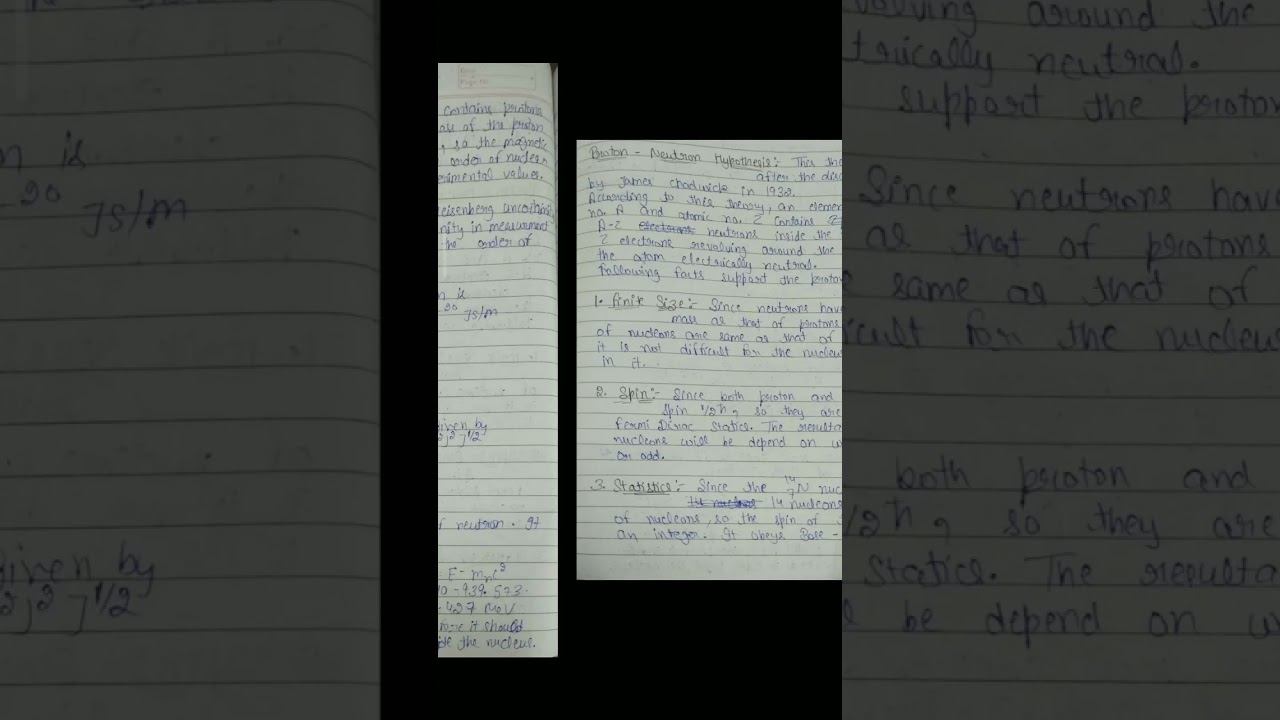 contains protons
of the proton
, so the magnetic
order of nuclear
erimental values.
eisenberg uncertainity
nity in measurment
the order of
n is
-20 Js/m
given by
2]2 ]1/2
neutron. It
E = mnc2
- 939.573
.427 MeV
it should
the nucleus.
Proton - Neutron Hypothesis:- This the
after the dis
by James chadwick in 1932.
According to this theory, an elemen
no. A and atomic no. Z contains Z
A-Z electrons neutrons inside the
Z electrons revolving around the
the atom electrically neutral.
Following facts support the proton
1. Finite Size:- Since neutrons have
mass as that of protons
of nucleons are same as that of
it is not difficult for the nucleus
in it.
2. Spin:- Since both proton and
Spin 1/2ħ, so they are
Fermi Dirac Statics. The resulta
nucleons will be depend on w
or odd.
3. Statistics:- Since the 14 7 N nuc
14 nucleons
of nucleons, so the spin of
an integer. It obeys Bose -
n is
-20 Js/m
given by
2]2 ]1/2
volving around the
trically neutral.
support the proton
Since neutrons have
as that of protons
same as that of
icult for the nucleus
both proton and
1/2ħ, so they are
Statics. The resulta
be depend on w